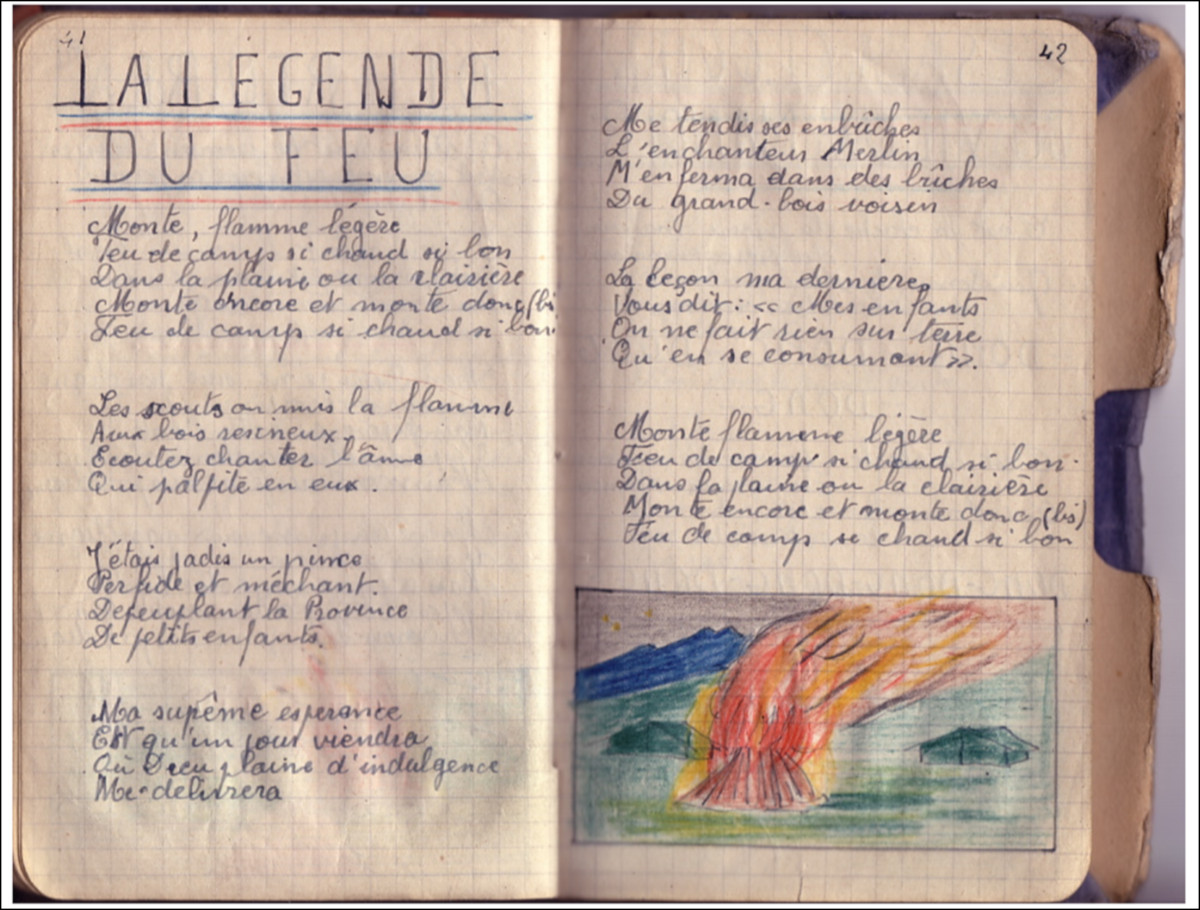 41
LA LEGENDE
DU FEU
Monte, flamme légère
Feu de camp si chaud si bon
Dans la plaine ou la clairière
Monte encore et monte donc (bis
Feu de camp si chaud si bon.
Les scouts on mis la flamme
Aux bois resineux.
Ecoutez chanter l'âme
Qui palpite en eux.
J'étais jadis un prince
Perfide et méchant.
Depeuplant la Province
De petits enfants.
Ma supême esperance
Est qu'un jour viendra
Où Dieu plaine d'indulgence
Me delivrera
42
Me tendis ses enbûches
L'enchanteur Merlin
M'enferma dans des bûches
Du grand-bois voisin
La leçon ma dernière,
Vous dit : << Mes enfants
On ne fait rien sur terre
Qu'en se consumant >>.
Monte flamme légère
Feu de camp si chaud si bon.
Dans la plaine ou la clairière
Monte encore et monte donc (bis)
Feu de camp si chaud si bon